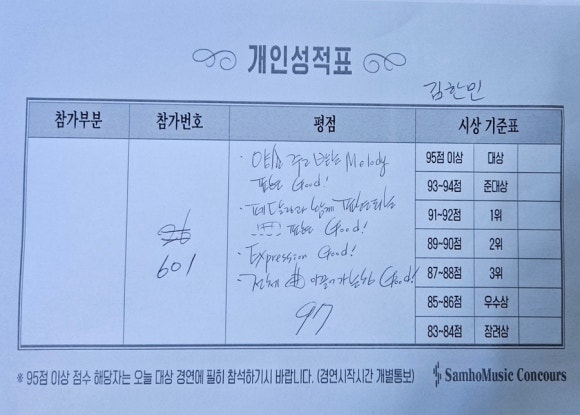 개인성적표
김한민
참가부분 참가번호 평점 시상 기준표
· 양손 주고받는 Melody
표현 Good!
· 페달과 함께 표현되는
표현 Good!
· Expression Good!
· 전체 이끌어가는 Good!
97
601
95점 이상 대상
93~94점 준대상
91~92점 1위
89~90점 2위
87~88점 3위
85~86점 우수상
83~84점 장려상
※ 95점 이상 점수 해당자는 오늘 대상 경연에 필히 참석하기시 바랍니다. (경연시작시간 개별통보)
SamhoMusic Concours